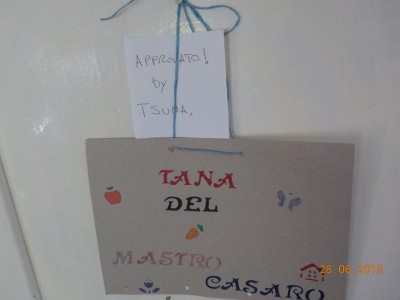 APPROVATO!
by
TSUMA.
TANA
DEL
MASTRO
CASARO
28 06 2015